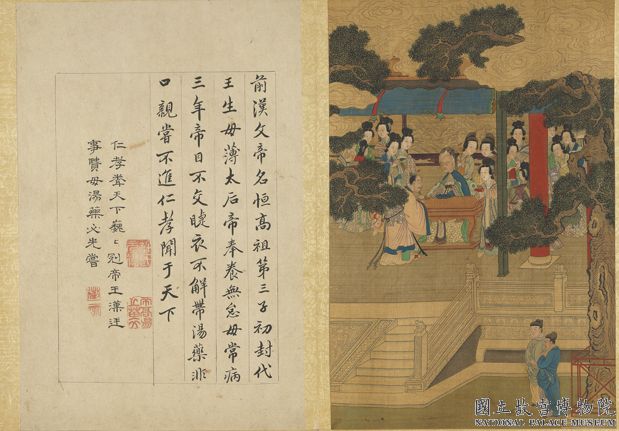 前漢文帝名恒高祖第三子初封代
王生母薄太后帝奉養無怠母常病
三年帝目不交睫衣不解帶湯藥非
口親嘗不進仁孝聞于天下
仁孝天下巍〻冠帝王漢廷
事賢母湯藥必先嘗
國立故宮博物院
NATIONAL PALACE MUSEUM